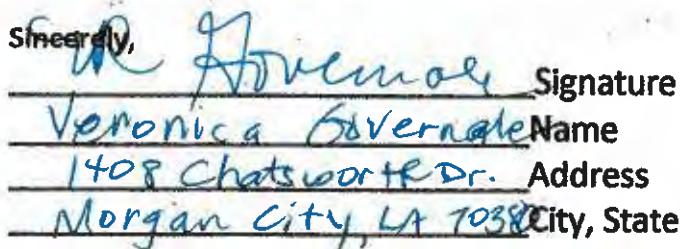 Sincerely,
VR Governale Signature
Veronica Governale Name
1408 Chatsworth Dr. Address
Morgan City, LA 70380 City, State